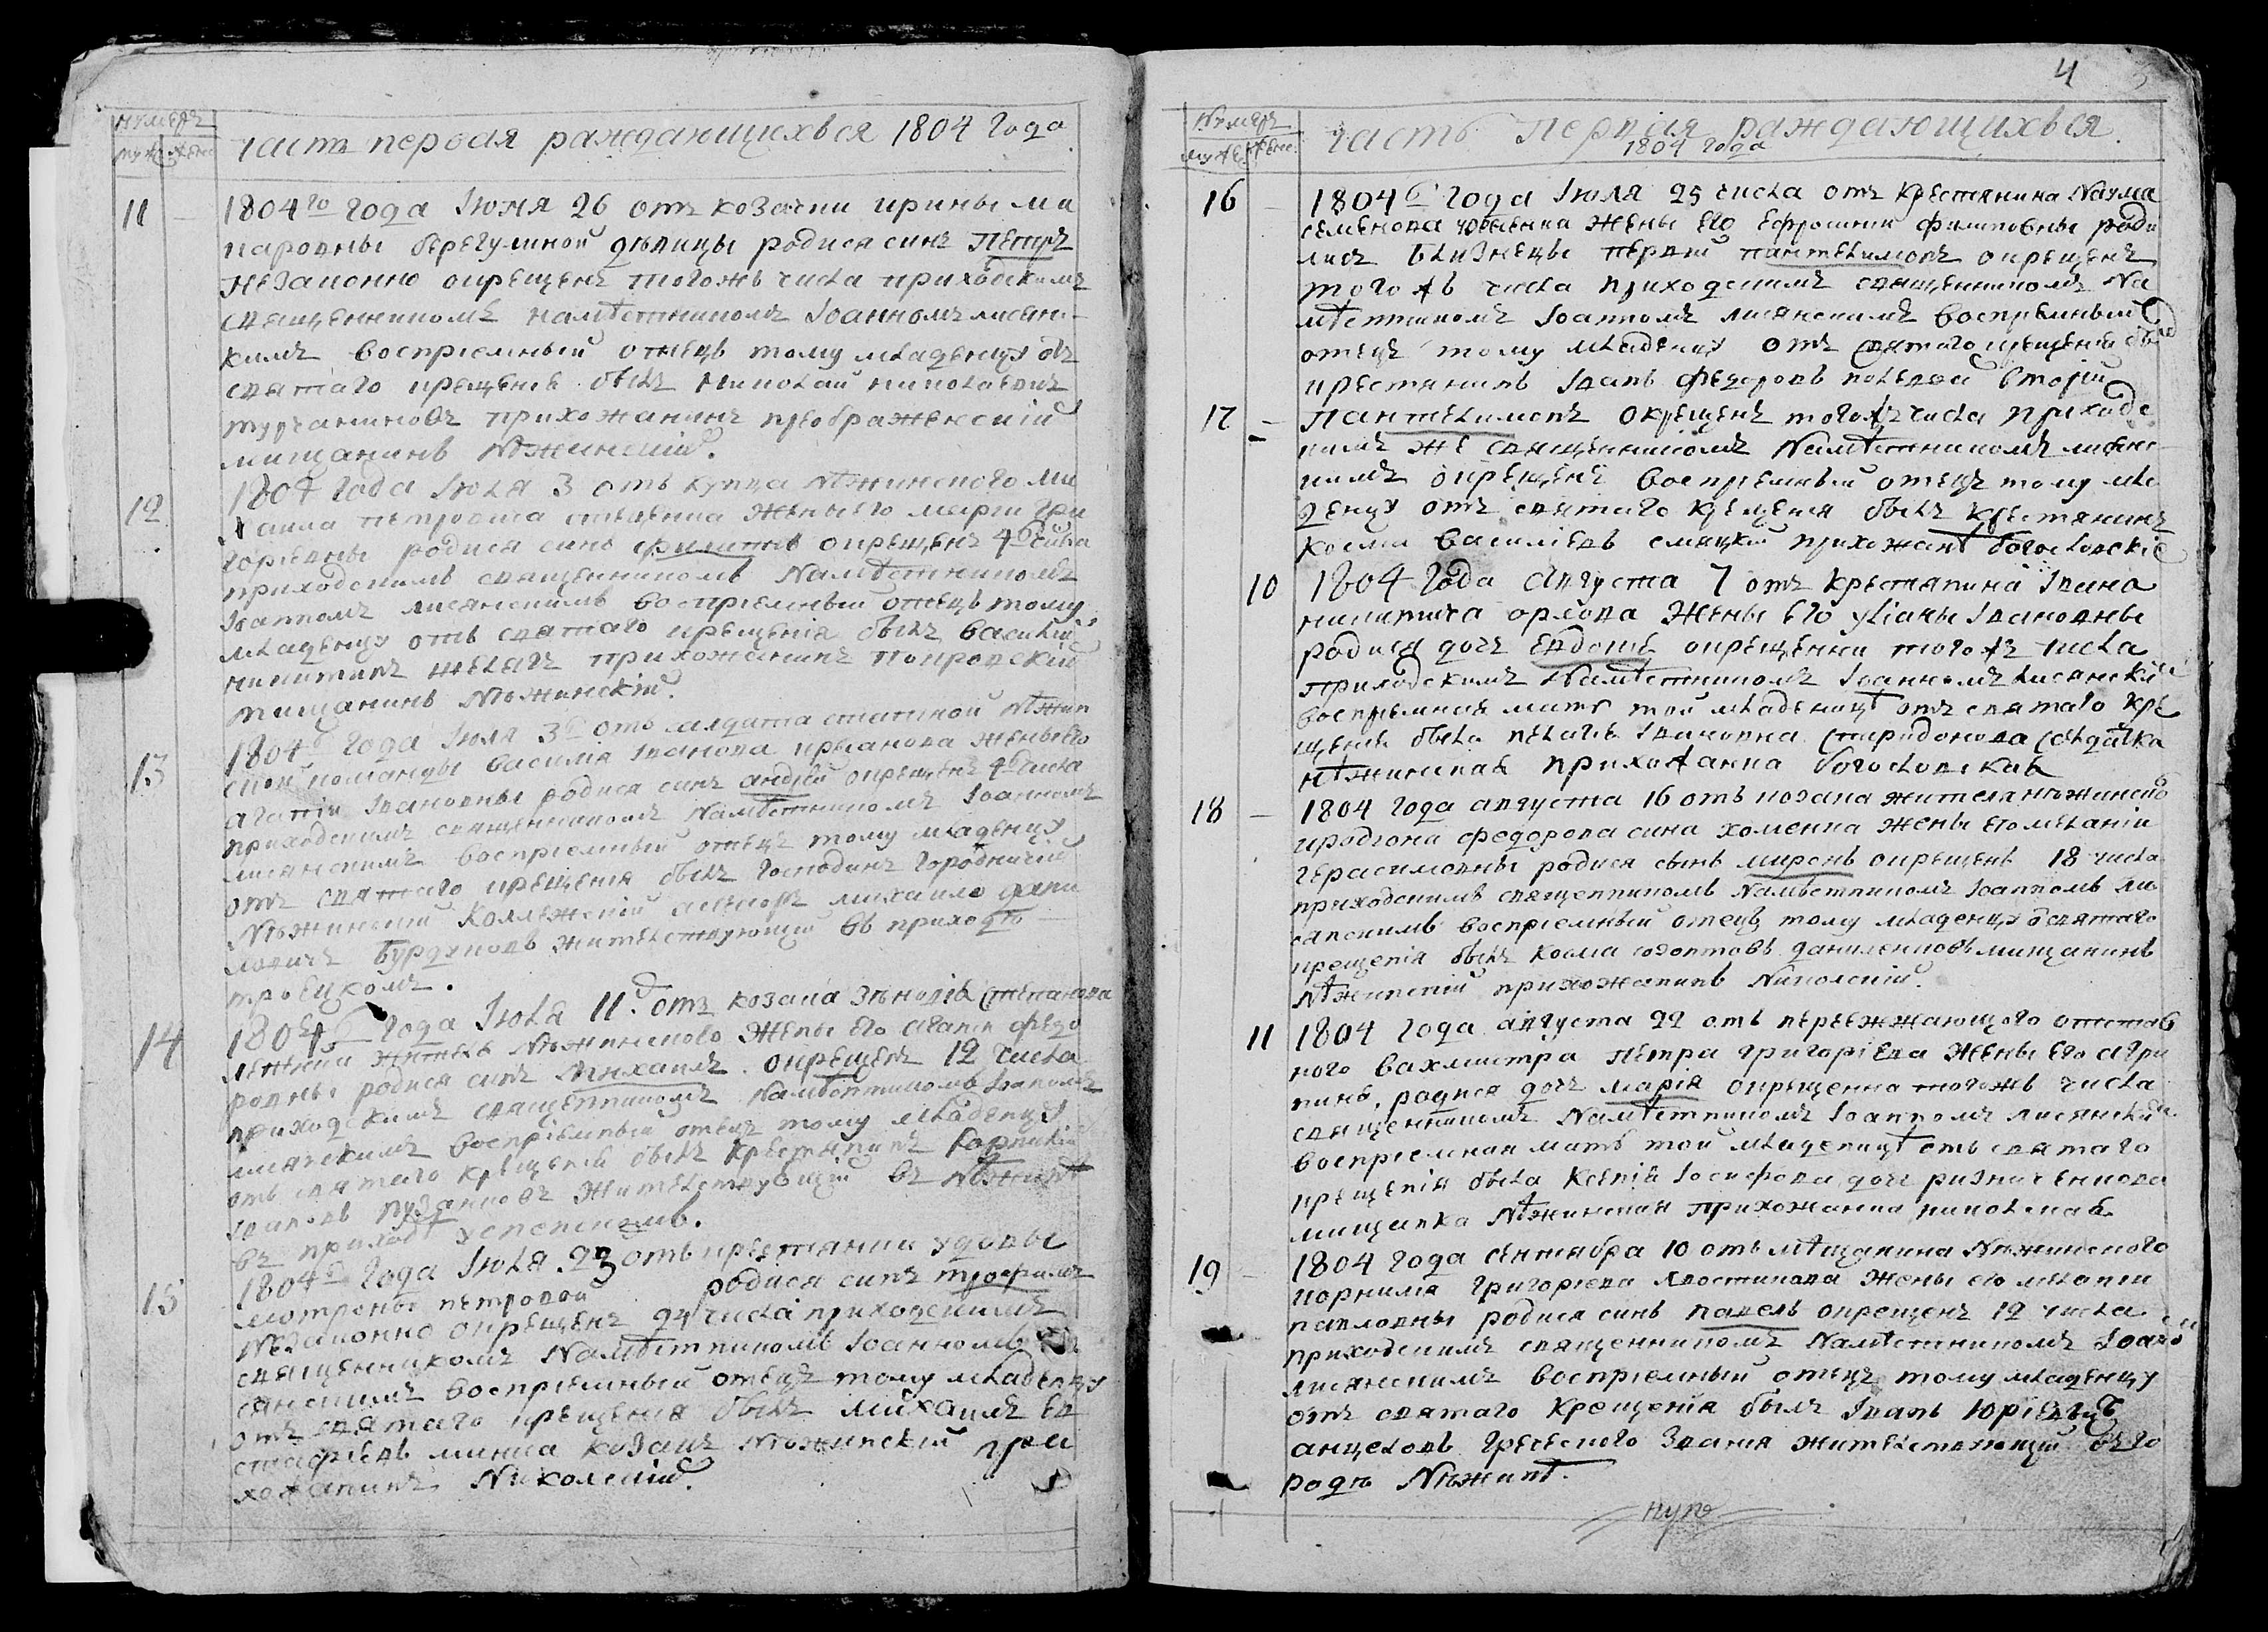 нумеръ
муже женс
часть первая раждающихъся 1804 года
11 –
1804го года Іюня 26 отъ козачки ирины ма
каровны берегулиной дѣвицы родися синъ Петръ
незаконно окрещенъ тогожъ числа приходскимъ
священникомъ намѣстникомъ Іоанномъ лисян-
кимъ воспріемный отецъ тому младенцу отъ
святаго крещенія былъ Николай николаевичъ
турчаниновъ прихожанинъ преображенскій
мищанинъ Нѣжинскій.
12
1804 года Іюля 3 отъ купца Нѣжинского ми
хаила петровича жены его маріи гри
горіевны родися синъ филиппъ окрещенъ 4го числа
приходскимъ священникомъ Намѣстникомъ
Іоанномъ лисянскимъ воспріемный отецъ тому
младенцу отъ святаго крещенія былъ василій
никитинъ прихожанинъ покровскій
мищанинъ Нѣжинскій.
13
1804г года Іюля 3г отъ салдата статной Нѣжин
ской команды василія Іванова жены его
агапіи Івановны родися синъ андрей окрещенъ 4г числа
приходскимъ священникомъ Намѣстникомъ Іоанномъ
лисянскимъ воспріемный отецъ тому младенцу
отъ святаго крещенія былъ Господинъ Городничій
Нѣжинскій Коллежскій асесоръ михаило дани
ловичъ Бурдуковъ жительствующій въ приходѣ
троецкомъ.
14
1804г года Іюля 11г отъ козака зѣновія степанова
житель Нѣжинского жены его агапіи федо
ровны родися синъ Михаилъ окрещенъ 12 числа
приходскимъ священникомъ Намѣстникомъ Іоанномъ
лисянскимъ воспріемный отецъ тому младенцу
отъ святаго крещенія былъ крестянинъ корнилій
Івановъ пузанковъ жительствующій въ Нѣжинѣ
въ приходѣ успенскомъ.
15
1804г года Іюля 23 отъ крестянки удовы
мотроны петровой родися синъ трофимъ
Незаконно окрещенъ 24 числа приходскимъ
священникомъ Намѣстникомъ Іоанномъ ли
сянскимъ воспріемный отецъ тому младенцу
отъ святаго крещенія былъ михаилъ ев
стафіевъ минка козакъ нѣжинскій при
хожанинъ Николскій.
4
Нумеръ
муже женс
часть первая раждающихъся
1804 года
16 –
1804г года Іюля 25 числа отъ крестянина Наума
семенова жены его ефросинии филиповны роди
лись близнецы первій пантелимонъ окрещенъ
того жъ числа приходскимъ священникомъ На
мѣстникомъ Іоанномъ лисянскимъ воспріемный
отецъ тому младенцу отъ святаго крещенія былъ
крестянинъ Іванъ федоровъ вторій
17 –
пантелимонъ окрещенъ тогожъ числа приходс
кимъ же священникомъ Намѣстникомъ лисянс-
кимъ окрещенъ воспріемный отецъ тому мла
денцу отъ святаго крещенія былъ крестянинъ
косма василіевъ прихожанъ богословскіе
10
1804 года августа 7 отъ крестянина Івана
никитича орлова жены его уліаны Івановны
родися дочъ Евдокіе окрещенна тогожъ числа
приходскимъ Намѣстникомъ Іоанномъ лисянскимъ
воспріемная мать той младеницѣ отъ святаго кре
щеніе была Івановна спиридонова солдатка
нѣжинская прихожанка богословская
18 –
1804 года августа 16 отъ козака жителя нѣжинского
федорова сина хоменка жены его меланіи
герасимовны родися сынъ миронъ окрещенъ 18 числа
приходскимъ священникомъ намѣстникомъ Іоанномъ ли
сянскимъ воспріемный отецъ тому младенцу о святаго
крещенія былъ козма даниленковъ мищанинъ
нѣжинскій прихожанинъ Николскій.
11
1804 года августа 22 отъ переежжающого отстав
ного вахмистра петра григоріева жены его агри
пины, родися дочъ марія окрещенна тогожъ числа
священникомъ Намѣстникомъ Іоанномъ лисянскимъ
воспріемная мать той младеницѣ отъ святаго
крещенія была Ксенія Іосифова дочъ ризниченкова
мищанка Нѣжинская прихожанка николская.
19 –
1804 года сентября 10 отъ мѣщанина Нѣжинского
корнилія григоріева хвостикова жены его меланіи
павловны родися синъ павелъ окрещенъ 12 числа
приходскимъ священникомъ Намѣстникомъ Іоанно
лисянскимъ воспріемный отецъ тому младенцу
отъ святаго Крещенія былъ Іванъ Юріевичъ
анцеловъ греческого званія жительствующій въ го
родѣ Нѣжинѣ.